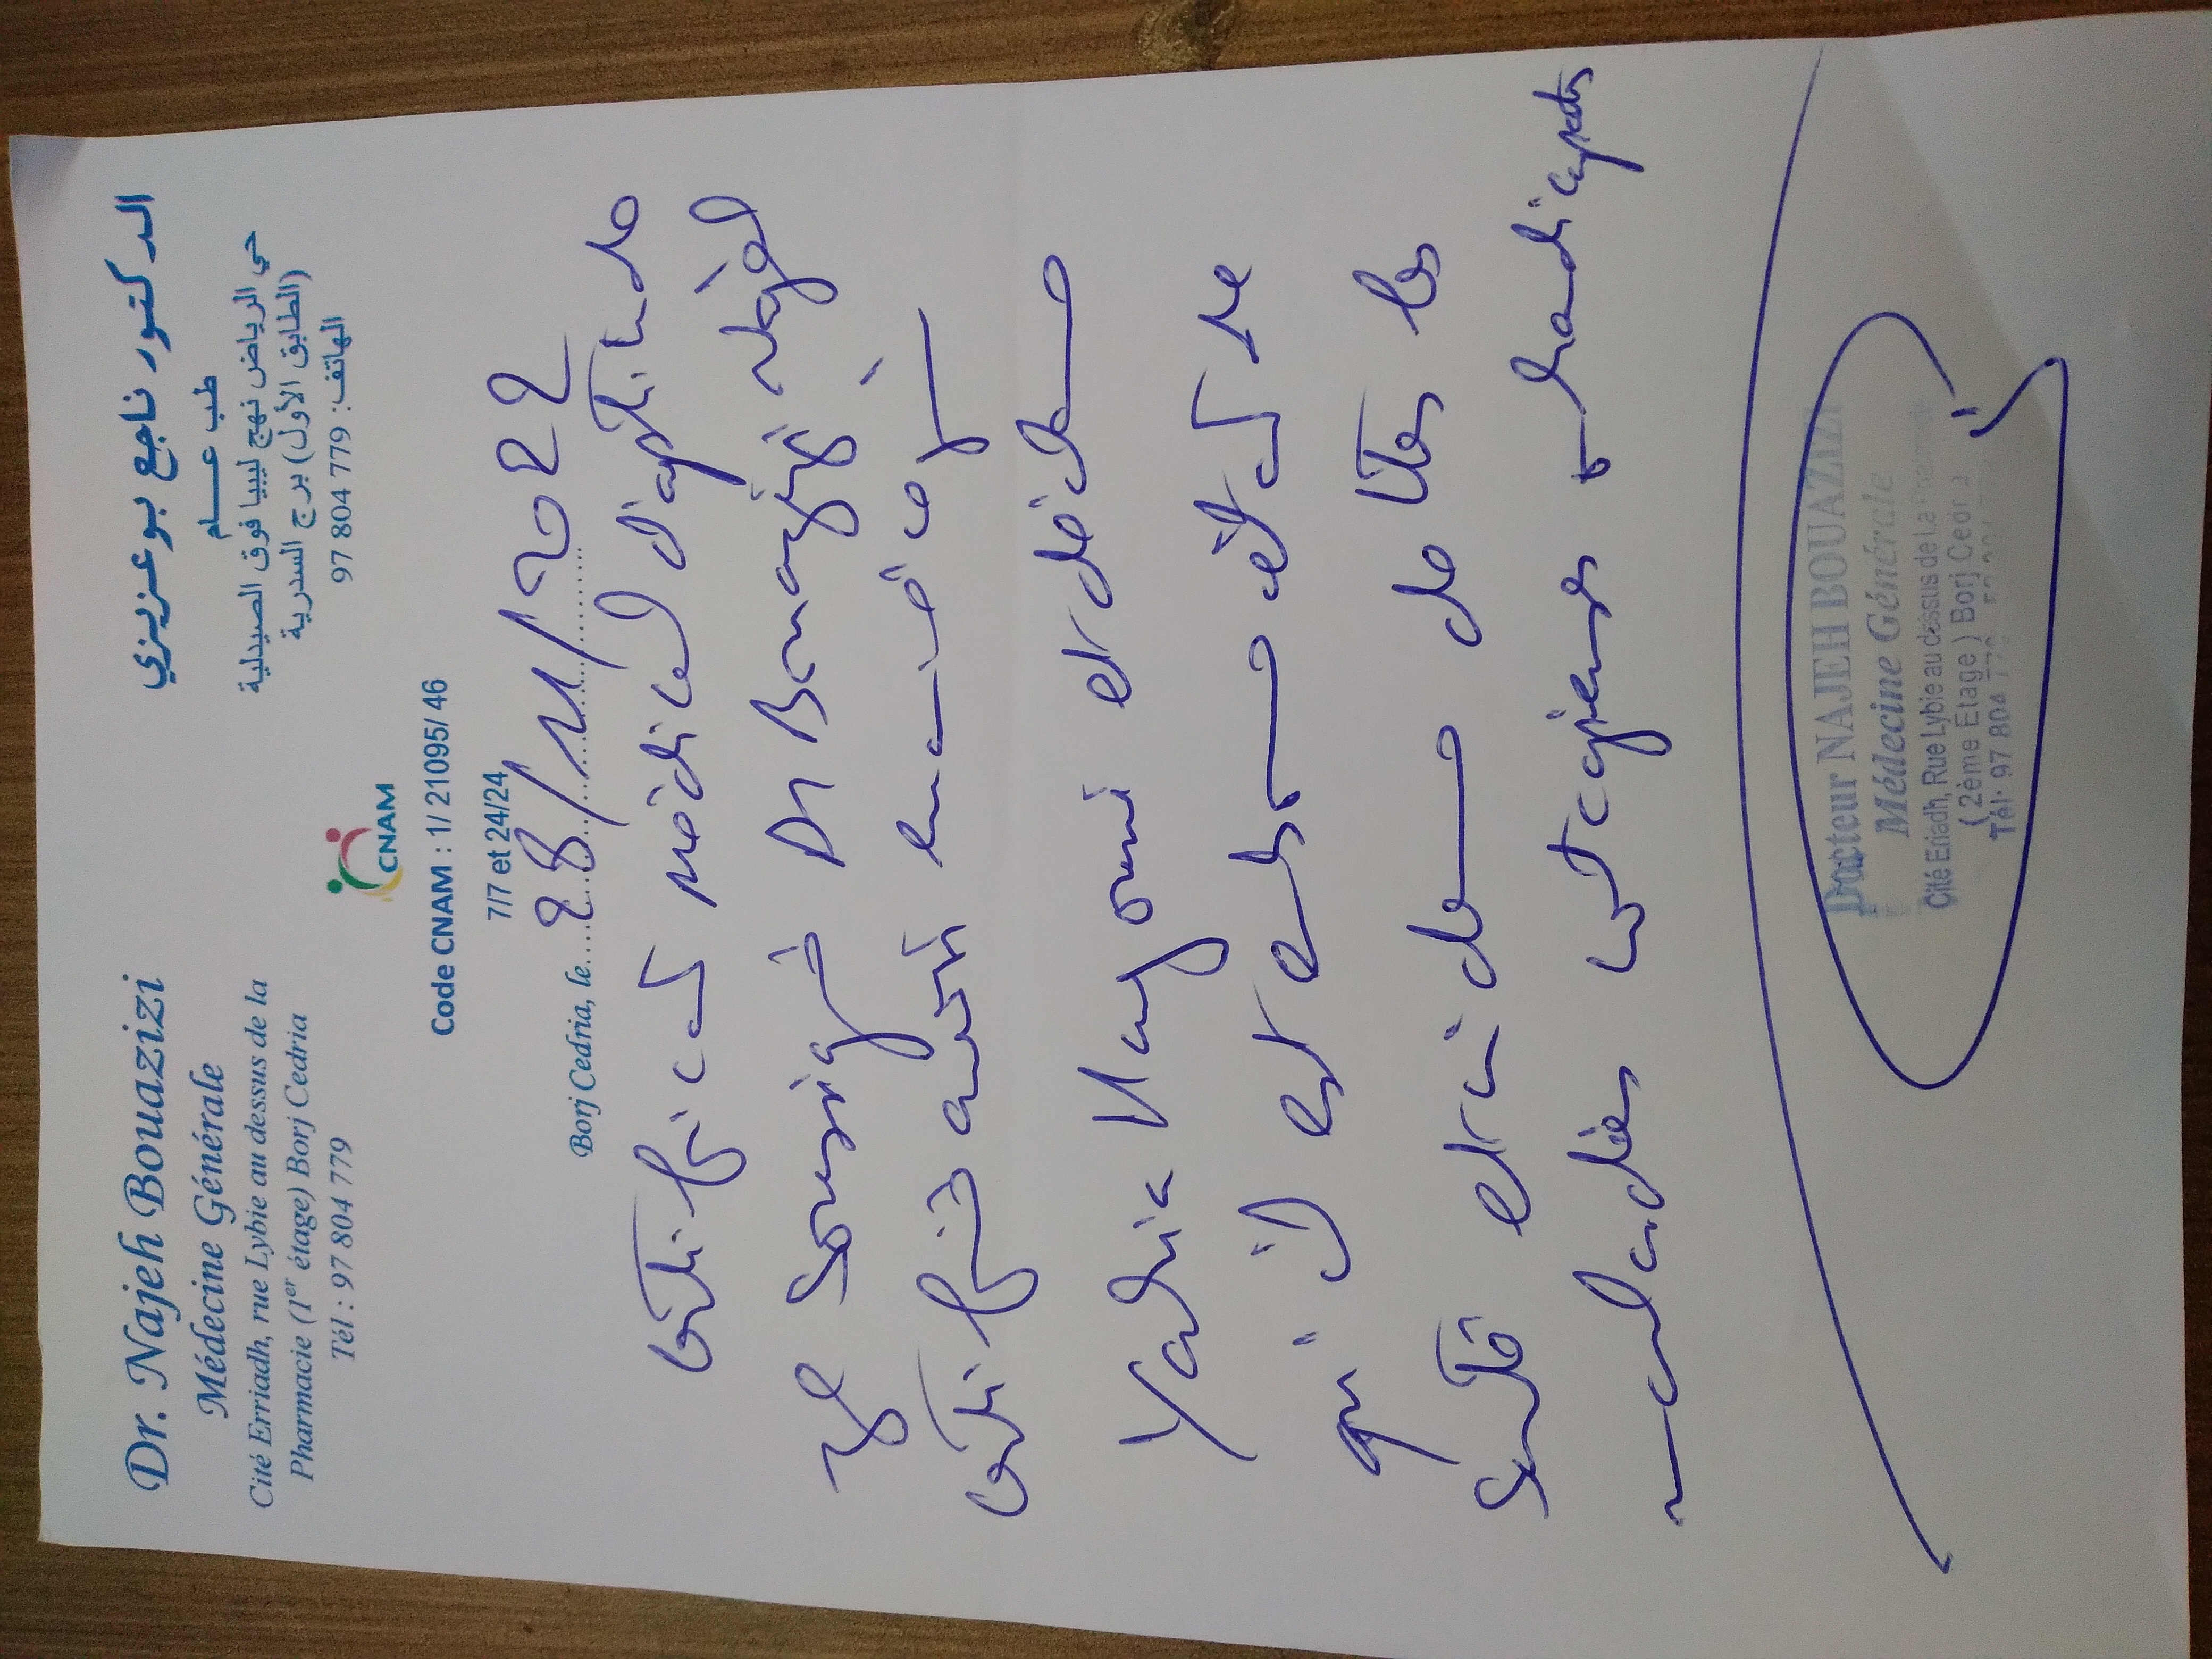 Dr. Najeh Bouazizi
Médecine Générale
Cité Erriadh, rue Lybie au dessus de la
Pharmacie (1er étage) Borj Cedria
Tél : 97 804 779
الدكتور ناجح بوعزيزي
طب عـــام
حي الرياض نهج ليبيا فوق الصيدلية
(الطابق الأول) برج السدرية
الهاتف: 779 804 97
CNAM
Code CNAM : 1/ 21095/ 46
7/7 et 24/24
Borj Cedria, le 28/11/2022
Certificat médical d'aptitude
Je soussigné Dr Bouazizi Najeh
certifie avoir examiné ce jour
Yahia et déclare
qu'il est en bon état de
santé et indemne de toutes les
maladies contagieuses ou handicapantes
Docteur NAJEH BOUAZIZI
Médecine Générale
Cité Eriadh, Rue Lybie au dessus de La
( 2ème Etage ) Borj Cedria
Tél: 97 804